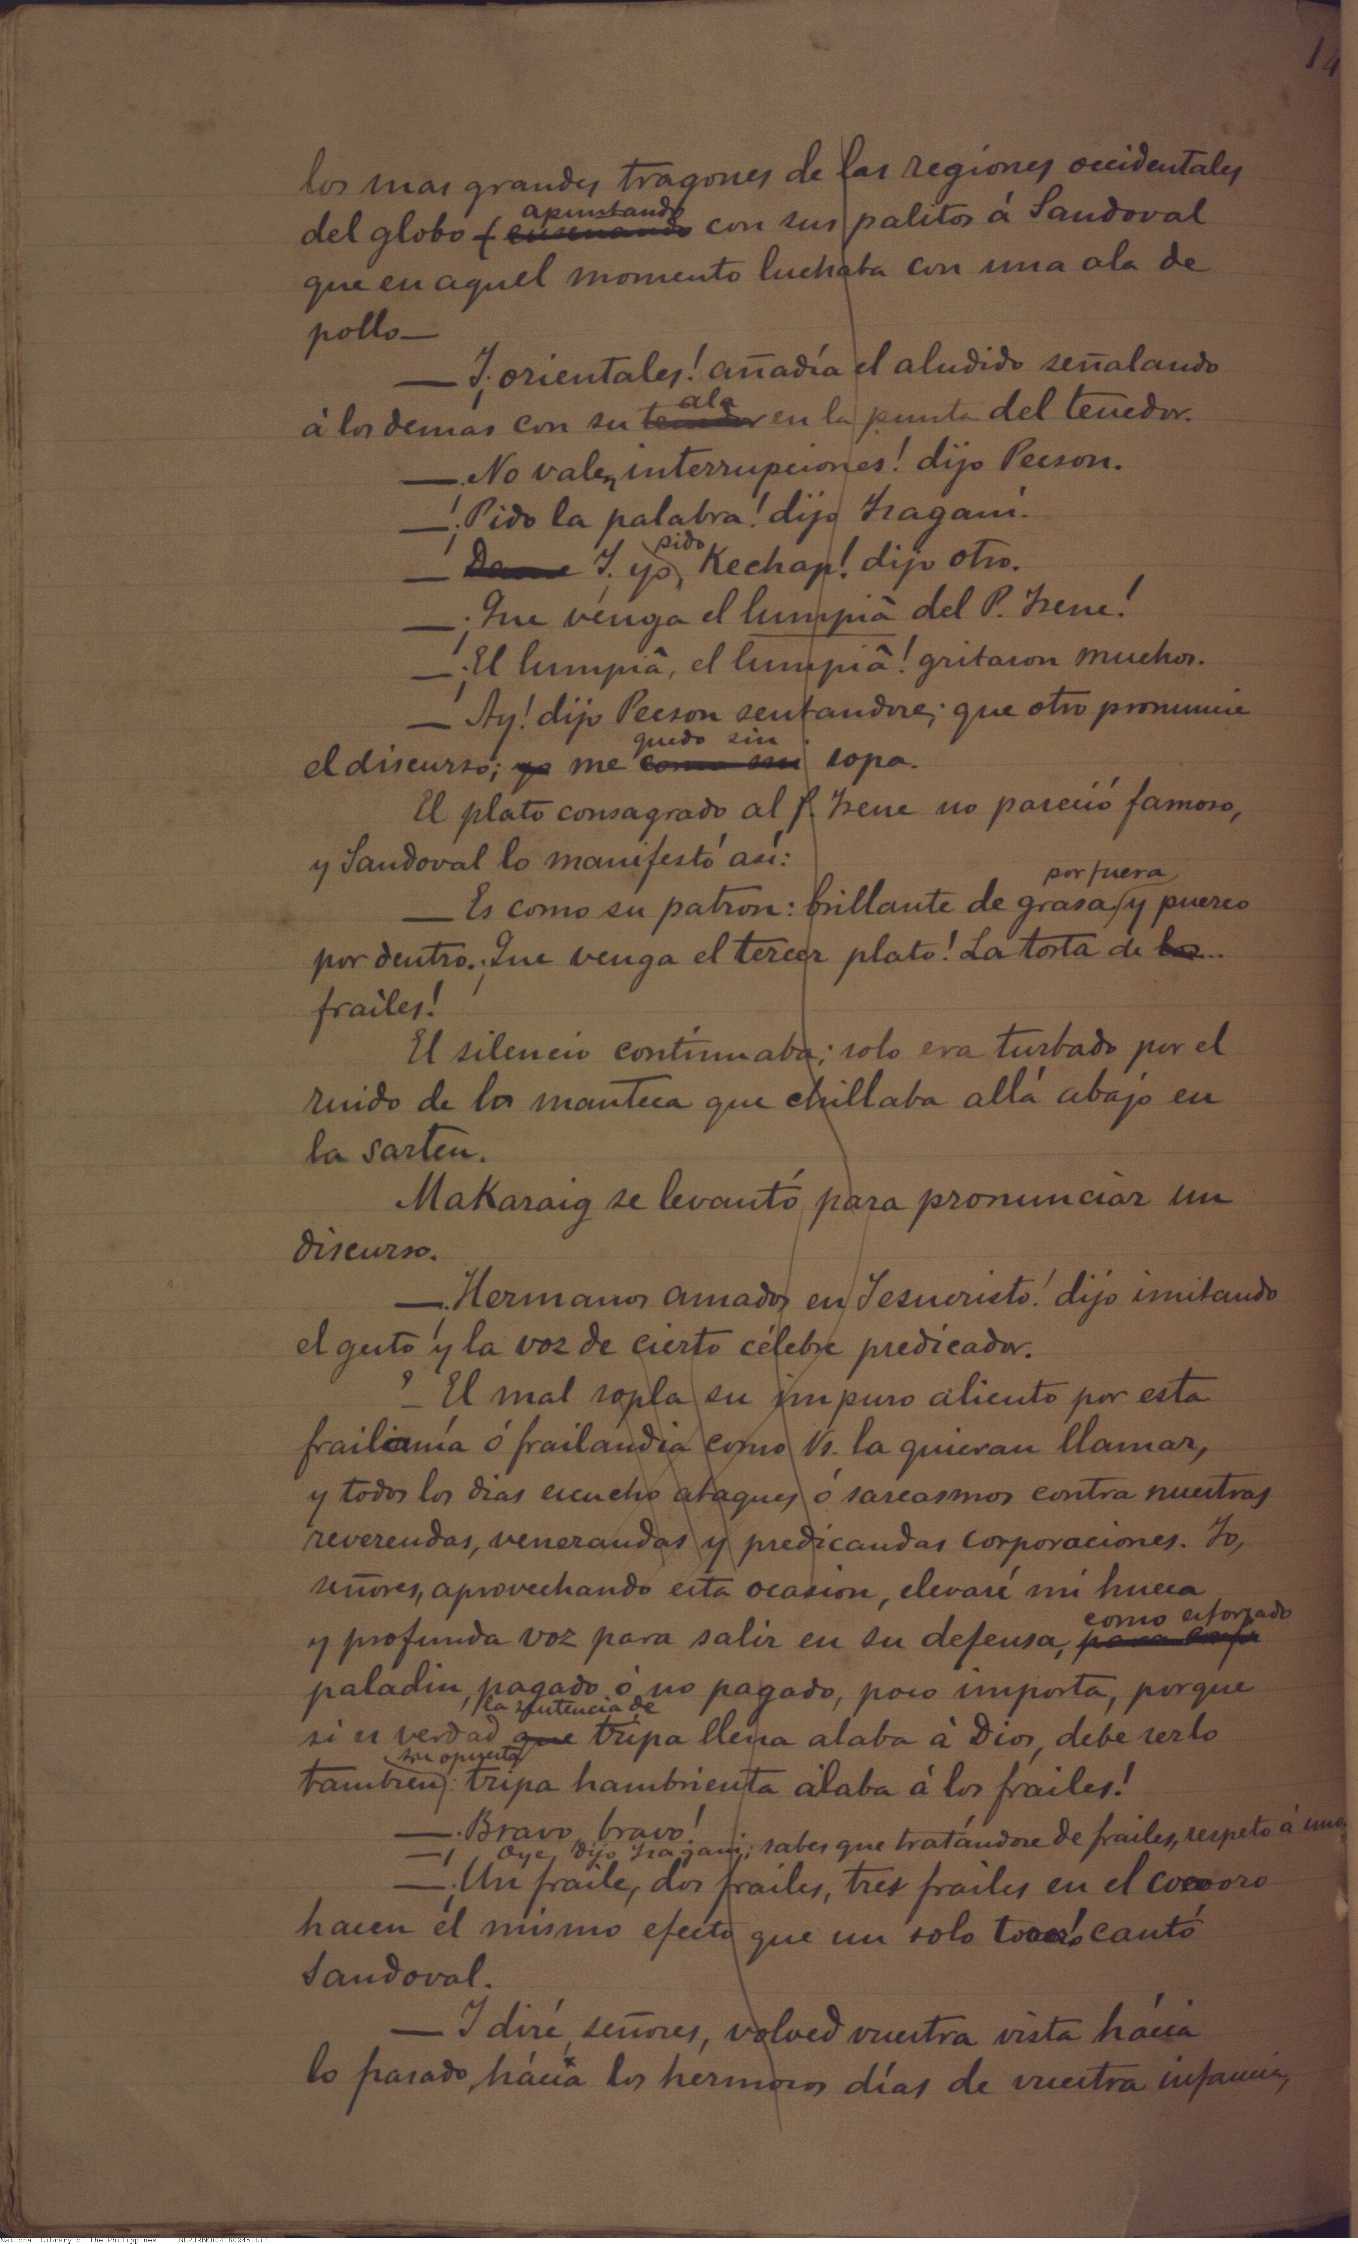 14
los mas grandes tragones de las regiones occidentales
apuntando
del globo — ( enseñando con sus palitos á Sandoval
que en aquel momento luchaba con una ala de
pollo —
— ¡Y orientales! añadía el aludido señalando
ala
á los demás con su tenedor en la punta del tenedor.
— ¡No valen interrupciones! dijo Pecson.
— ¡Pido la palabra! dijo Isagani.
pido
— Dame Y yo, Kechap! dijo otro.
— ¡Que venga el lumpiâ del P. Irene!
— ¡El lumpiâ, el lumpiâ! gritaron muchos.
— Ay! dijo Pecson sentandose; que otro pronuncie
quedo sin
el discurso; yo me como mi sopa.
El plato consagrado al P. Irene no pareció famoso,
y Sandoval lo manifestó así:
por fuera
— Es como su patron: brillante de grasa y puerco
por dentro. ¡Que venga el tercer plato! La torta de los...
frailes!
El silencio continuaba; solo era turbado por el
ruido de la manteca que chillaba allá abajo en
la sarten.
Makaraig se levantó para pronunciar un
discurso.
— ¡Hermanos amados en Jesucristo! dijo imitando
el gesto y la voz de cierto célebre predicador.
— El mal sopla su impuro aliento por esta
frailianía ó frailandia como Vs. la quieran llamar,
y todos los dias escucho ataques ó sarcasmos contra nuestras
reverendas, venerandas y predicandas corporaciones. Yo,
señores, aprovechando esta ocasion, elevaré mi hueca
como esforzado
y profunda voz para salir en su defensa,
paladin, pagado ó no pagado, poco importa, porque
la sentencia de
si es verdad que tripa llena alaba á Dios, debe serlo
su opuesta
tambien: tripa hambrienta alaba á los frailes!
— ¡Bravo, bravo!
— Oye, dijo Isagani; sabes que tratándose de frailes, respeto á uno
— ¡Un fraile, dos frailes, tres frailes en el cocoro
hacen el mismo efecto que un solo toro! cantó
Sandoval.
— Y diré, señores, volved vuestra vista hácia
lo pasado, hácia los hermosos días de vuestra infancia,
National Library of the Philippines